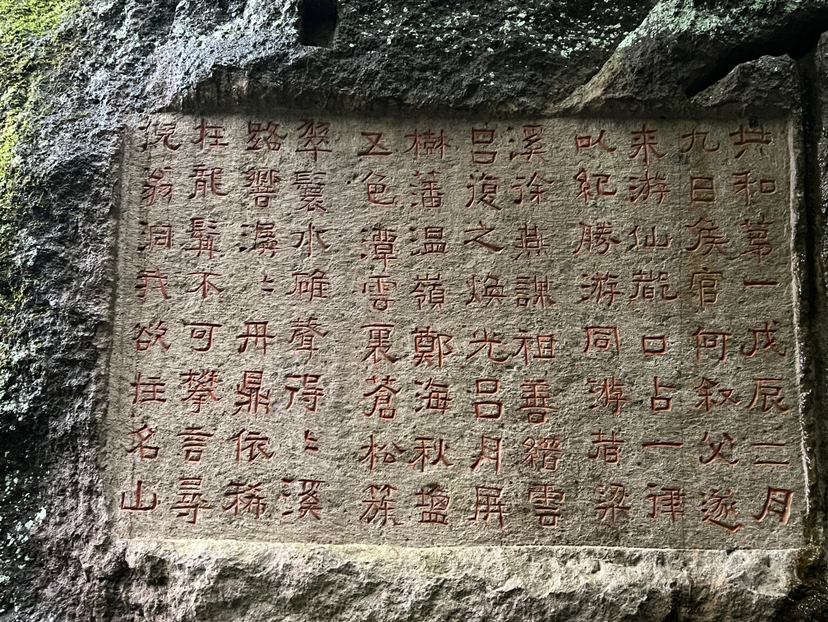 共和第一戊辰二月
九日矦官何叙父遂
来游仙巖口占一律
以紀勝游同游者梁
溪徐燕謀祖善縉雲
呂復之煥光呂月屏
樹藩温嶺鄭海秋
五色潭雲裏蒼松蔟
翠鬟水碓聲得〻溪
路響潺〻丹鼎依稀
在龍髯不可攀言尋
倪翁洞我欲住名山